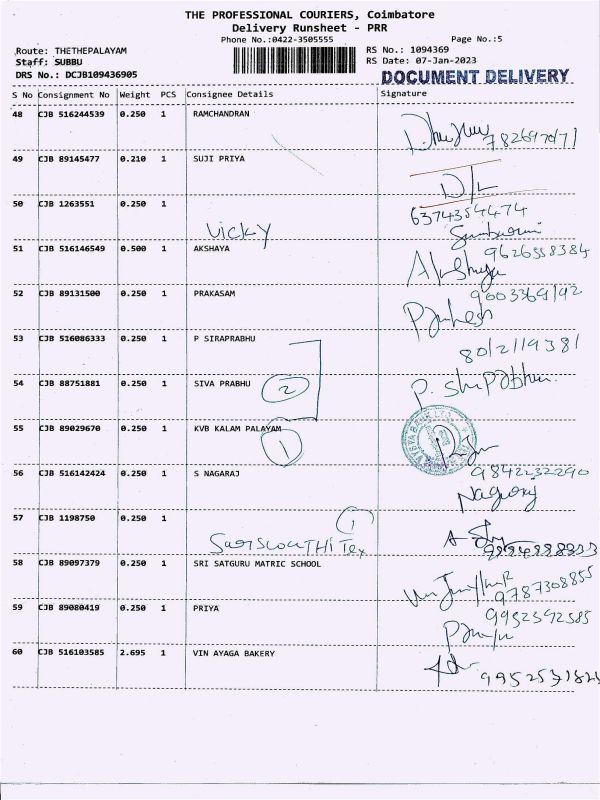 THE PROFESSIONAL COURIERS, Coimbatore
Delivery Runsheet - PRR
Phone No.:0422-3505555 Page No.:5
Route: THETHEPALAYAM RS No.: 1094369
Staff: SUBBU RS Date: 07-Jan-2023
DRS No.: DCJB109436905 DOCUMENT DELIVERY
S No Consignment No Weight PCS Consignee Details Signature
48 CJB 516244539 0.250 1 RAMCHANDRAN
49 CJB 89145477 0.210 1 SUJI PRIYA
D/L
50 CJB 1263551 0.250 1
6374354474
Vicky
51 CJB 516146549 0.500 1 AKSHAYA
9626558384
52 CJB 89131500 0.250 1 PRAKASAM
53 CJB 516086333 0.250 1 P SIRAPRABHU
54 CJB 88751881 0.250 1 SIVA PRABHU
2
55 CJB 89029670 0.250 1 KVB KALAM PALAYAM
1
56 CJB 516142424 0.250 1 S NAGARAJ
9842232290
57 CJB 1198750 0.250 1
1
58 CJB 89097379 0.250 1 SRI SATGURU MATRIC SCHOOL
9787308855
59 CJB 89080419 0.250 1 PRIYA
9952592585
60 CJB 516103585 2.695 1 VIN AYAGA BAKERY